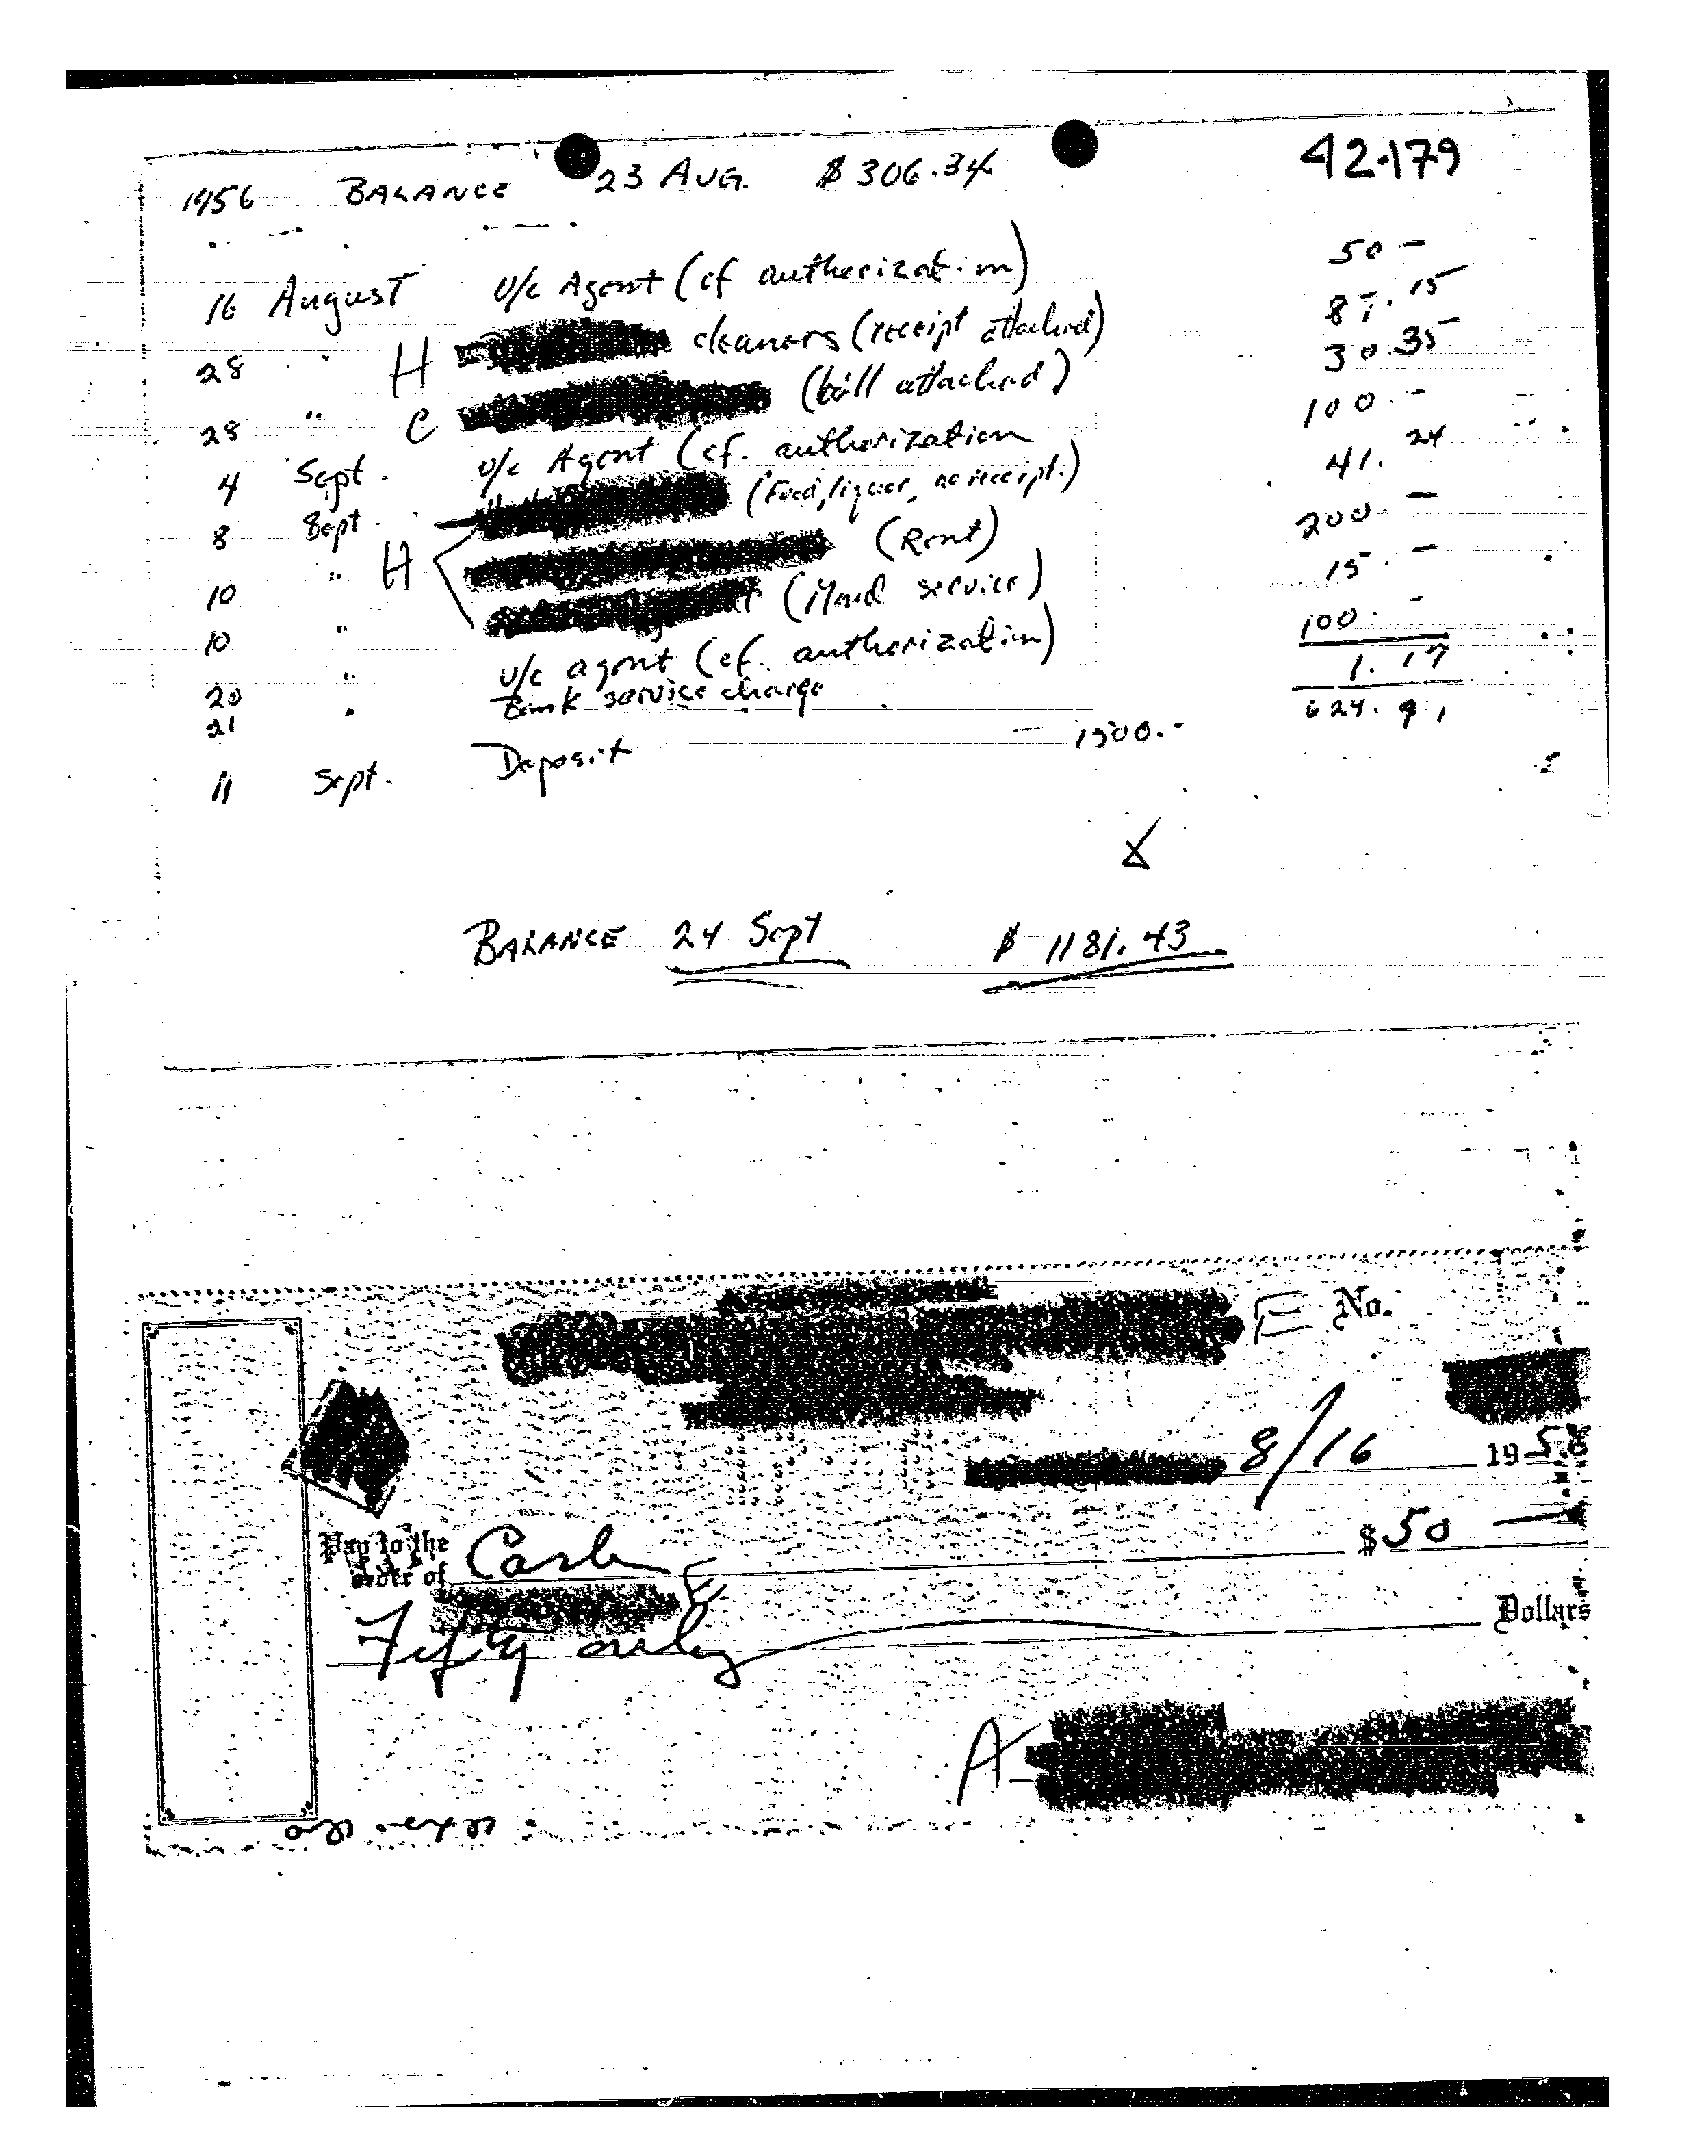 42-179
1956 BALANCE 23 AUG. $ 306.34
16 August u/c Agent (cf authorization) 50 -
28 " H cleaners (receipt attached) 87.15
28 " C (bill attached) 30.35
4 Sept. u/c Agent (cf. authorization 100. -
8 Sept. (Food, liquor, no receipt.) 41.24
10 " H (Rent) 200. -
10 " (Maid service) 15. -
20 " u/c agent (cf. authorization) 100. -
21 " Bank service charge 1.17
624.91
11 Sept. Deposit - 1500.-
BALANCE 24 Sept $ 1181.43
E No.
8/16 1956
Pay to the order of Cash $50
E
Fifty only Dollars
A